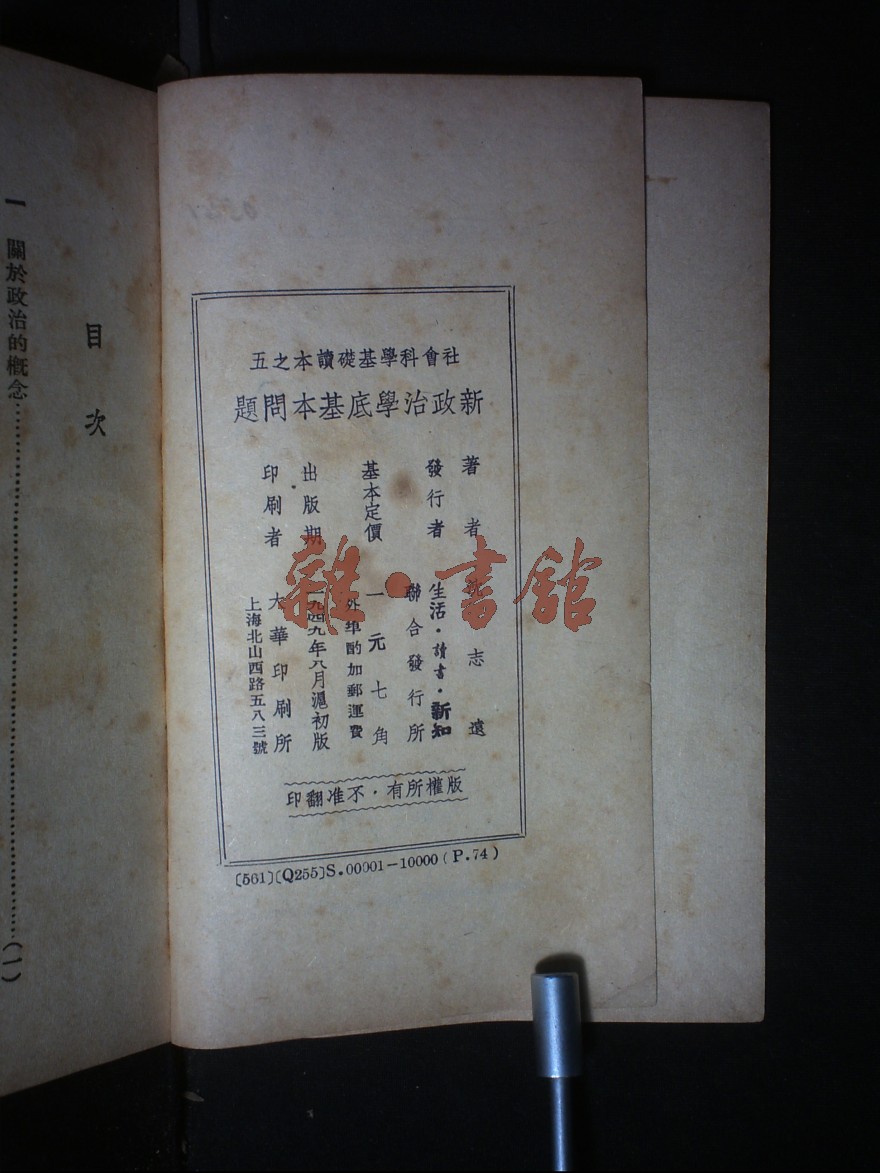 社會科學基礎讀本之五
新政治學底基本問題
著者 志遠
發行者 生活·讀書·新知
聯合發行所
基本定價 一元七角
外埠酌加郵運費
出版期 一九四九年八月滬初版
印刷者 大華印刷所
上海北山西路五八三號
版權所有·不准翻印
〔561〕〔Q255〕S.00001—10000(P.74)
目次
一 關於政治的概念……………………(一)
雜·書館